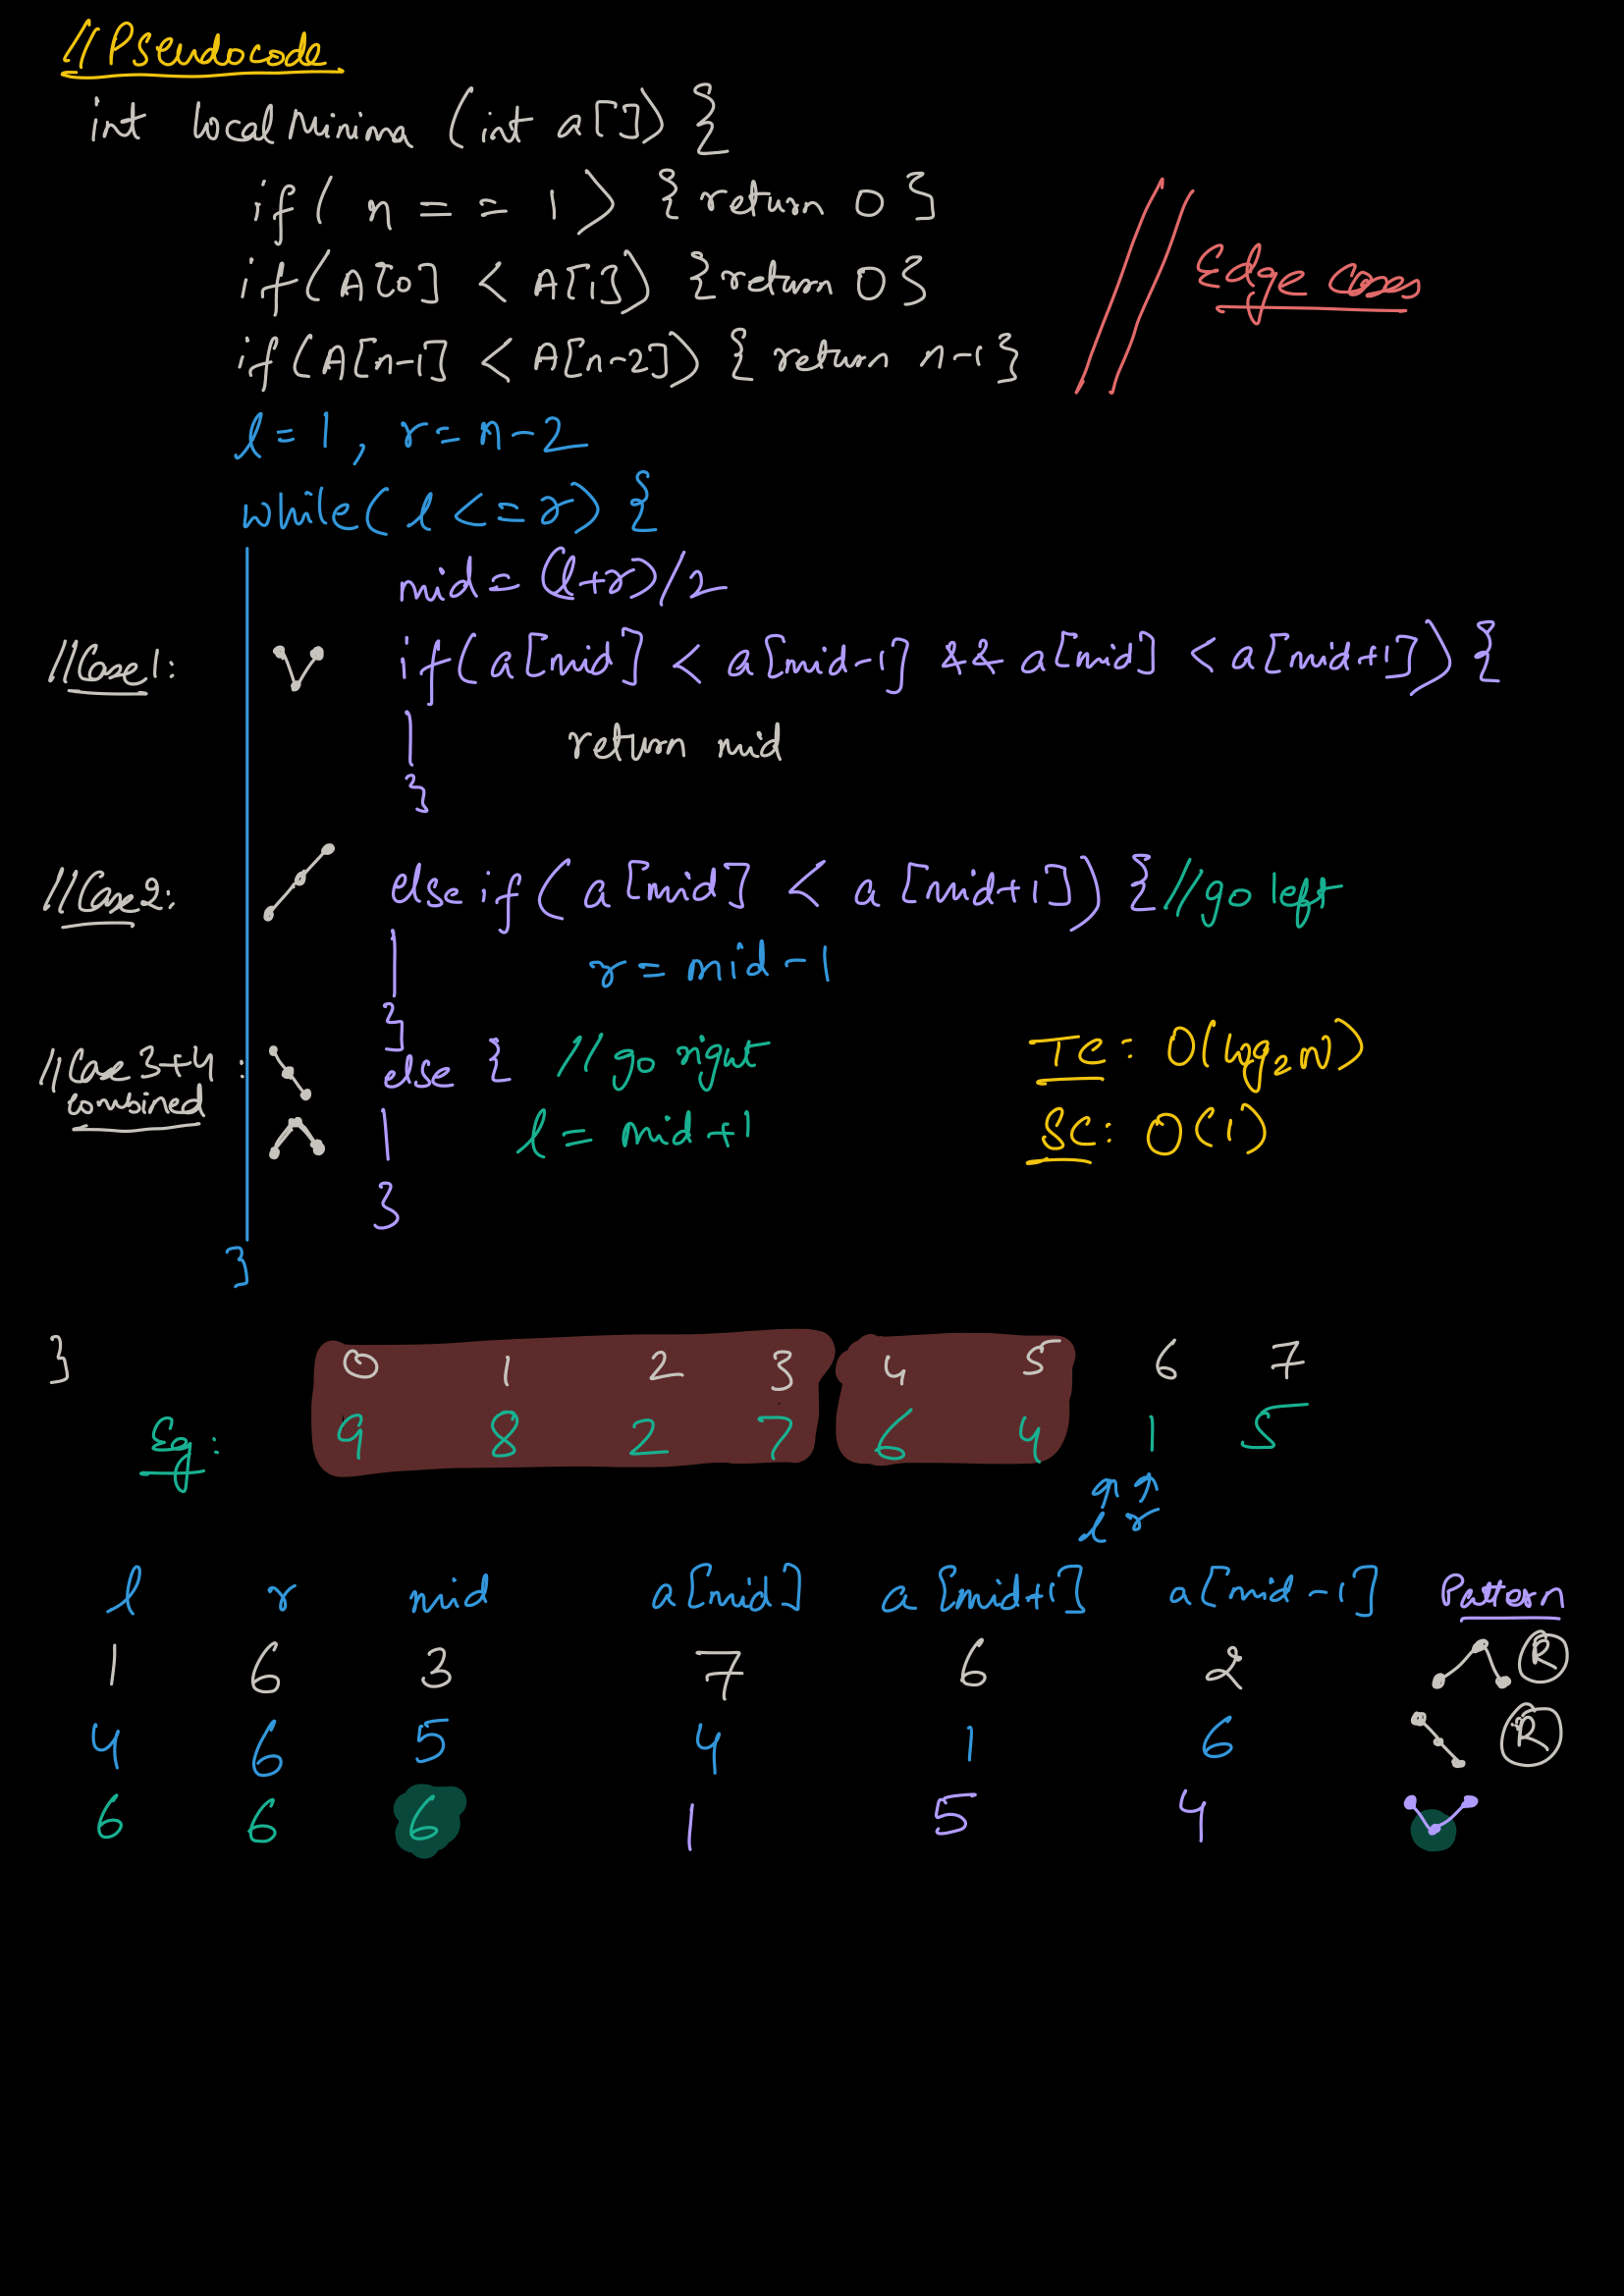 //Pseudocode
int localMinima (int a[]) {
if( n == 1) { return 0 }
if(A[0] < A[1]) {return 0}
if(A[n-1] < A[n-2]) { return n-1}
// Edge cases
l=1, r=n-2
while( l <= r) {
mid = (l+r)/2
//Case1: if(a[mid] < a[mid-1] && a[mid] < a[mid+1]) {
return mid
}
//Case2: else if( a[mid] < a[mid+1]) { //go left
r = mid-1
}
//Case 3+4 : else { //go right
combined
l = mid+1
}
TC: O(log₂N)
SC: O(1)
}
}
0 1 2 3 4 5 6 7
Eg: 9 8 2 7 6 4 1 5
l r
l r mid a[mid] a[mid+1] a[mid-1] Pattern
1 6 3 7 6 2 R
4 6 5 4 1 6 R
6 6 6 1 5 4